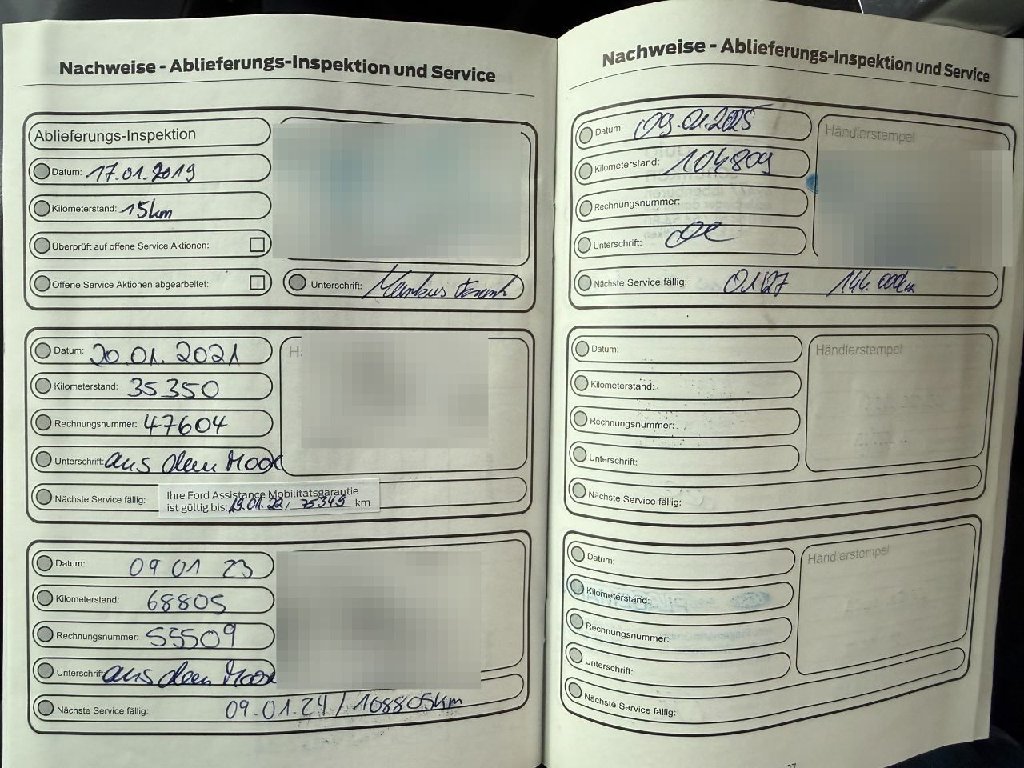 Nachweise - Ablieferungs-Inspektion und Service
Ablieferungs-Inspektion
Datum: 17.01.2019
Kilometerstand: 15km
Überprüft auf offene Service Aktionen:
Offene Service Aktionen abgearbeitet:
Unterschrift:
Datum: 20.01.2021
Kilometerstand: 35350
Rechnungsnummer: 47604
Unterschrift: aus dem Moor
Nächste Service fällig:
Ihre Ford Assistance Mobilitätsgarantie
ist gültig bis: 19.01.22 / 75349 km
Datum: 09 01 23
Kilometerstand: 68805
Rechnungsnummer: 55509
Unterschrift: aus dem Moor
Nächste Service fällig: 09.01.24 / 108805km
Nachweise - Ablieferungs-Inspektion und Service
Datum: 09.01.2025
Händlerstempel
Kilometerstand: 104809
Rechnungsnummer:
Unterschrift:
Nächste Service fällig: 01/27
Datum:
Händlerstempel
Kilometerstand:
Rechnungsnummer:
Unterschrift:
Nächste Service fällig:
Datum:
Händlerstempel
Kilometerstand:
Rechnungsnummer:
Unterschrift:
Nächste Service fällig: